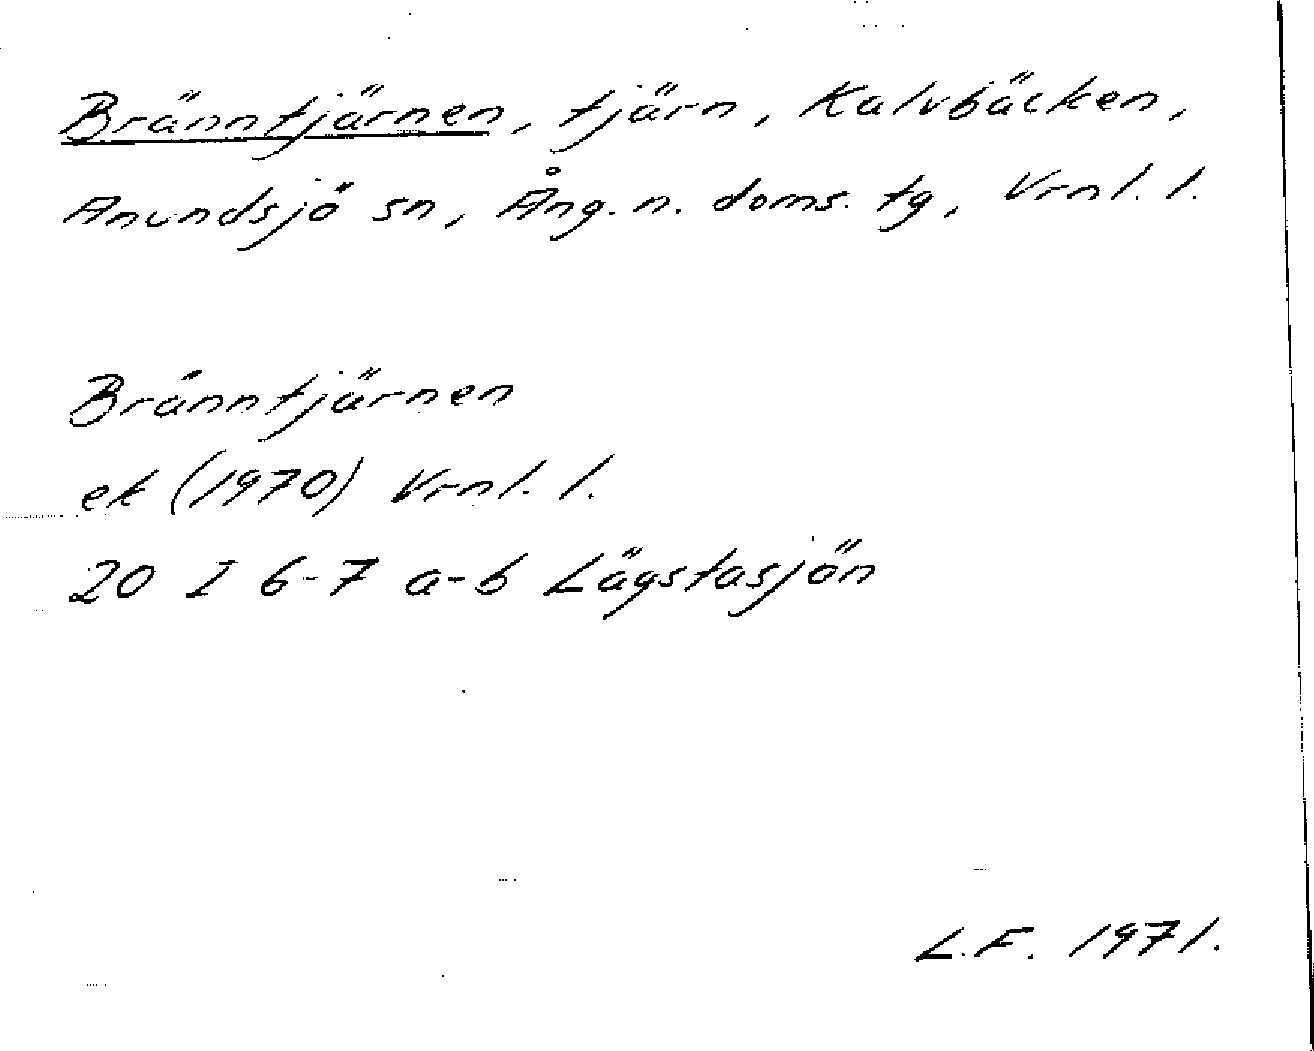 Bränntjärnen, tjärn, Kalvbäcken,
Anundsjö sn, Ång. n. doms. tg, Vrnl. l.
Bränntjärnen
ek (1970) Vrnl. l.
20 I 6-7 a-b Lägstasjön
L.F. 1971.